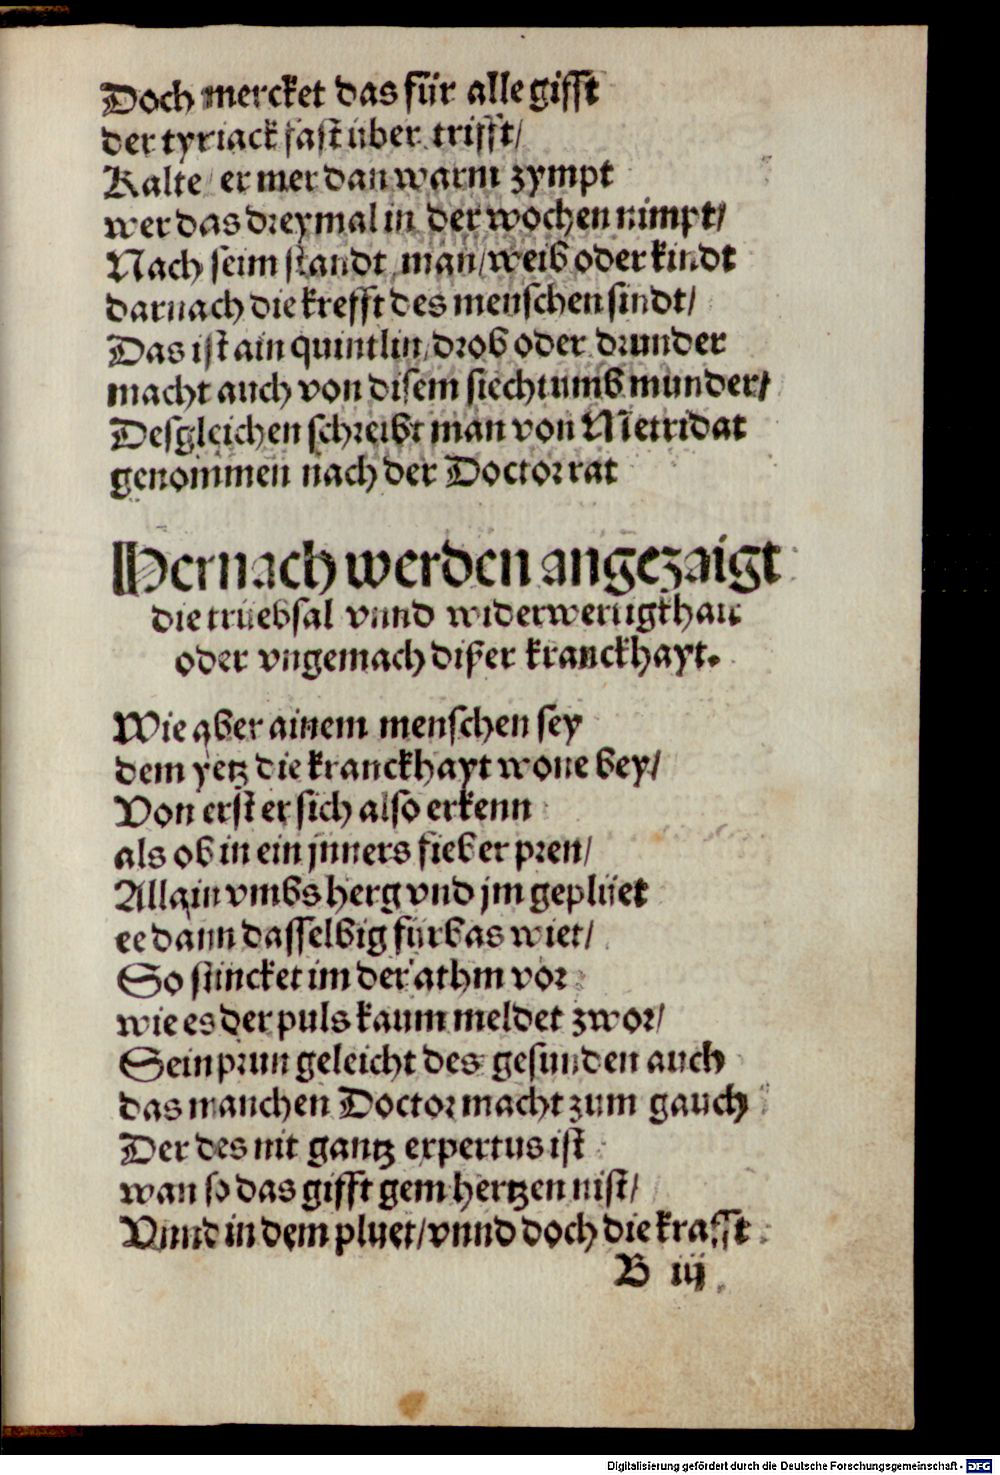 Doch mercket das für alle gifft
der tyriack fast über trifft/
Kalte er mer dan warm zympt
wer das dreymal in der wochen nimpt/
Nach seim standt man/weib oder kindt
darnach die krefft des menschen sindt/
Das ist ain quintlin/drob oder drunder
macht auch von disem siechtumb munder/
Desgleichen schreibt man von Metridat
genommen nach der Doctor rat
Hernach werden angezaigt
die truebsal vnnd widerwertigkhait
oder vngemach dißer kranckhayt.
Wie aber ainem menschen sey
dem yetz die kranckhayt wone bey/
Von erst er sich also erkenn
als ob in ein jnners fieber pren/
Allain vmbs herg vnd jm geplüet
ee dann dasselbig fürbas wiet/
So stincket im der athm vor
wie es der puls kaum meldet zwor/
Sein prun geleicht des gesunden auch
das manchen Doctor macht zum gauch
Der des nit gantz expertus ist
wan so das gifft gem hertzen nist/
Vnnd in dem pluet/vnnd doch die krafft
B iij
Digitalisierung gefördert durch die Deutsche Forschungsgemeinschaft - DFG